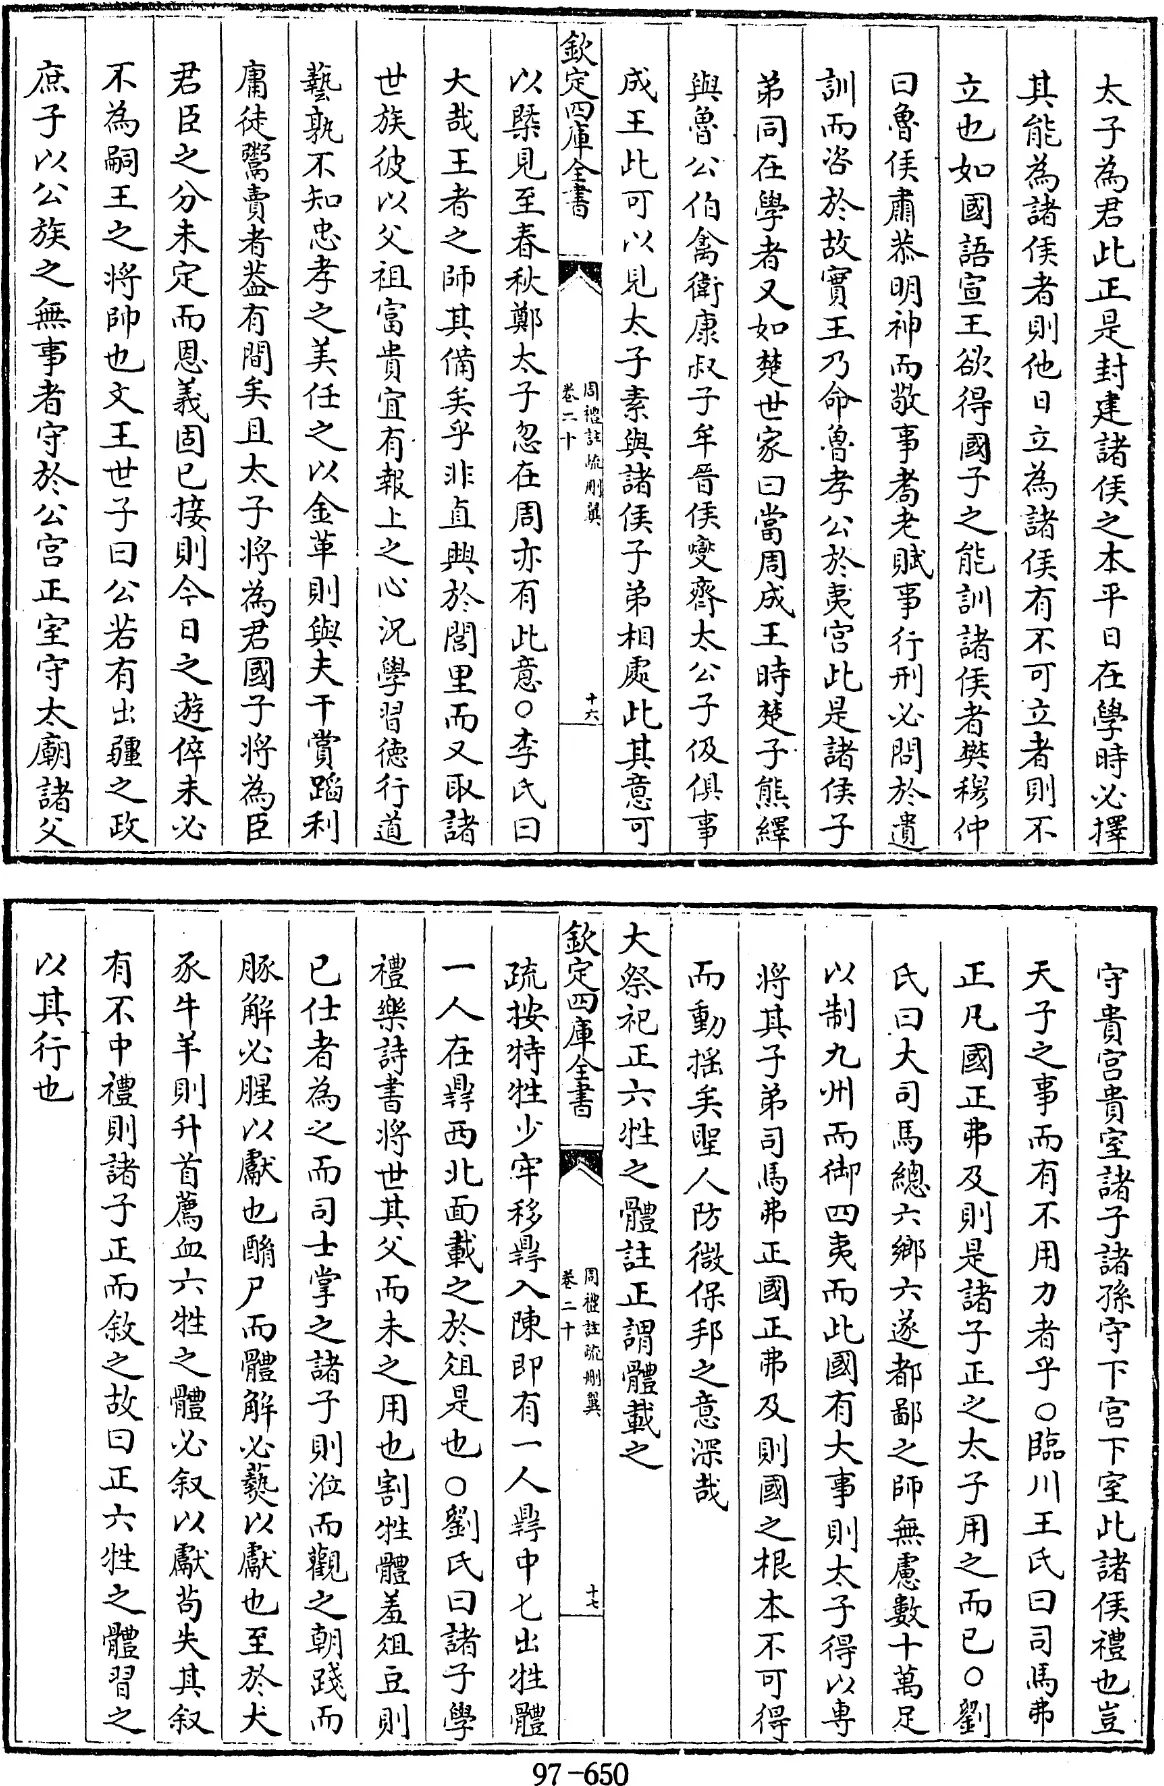 太子為君此正是封建諸侯之本平日在學時必擇
其能為諸侯者則他日立為諸侯有不可立者則不
立也如國語宣王欲得國子之能訓諸侯者樊穆仲
曰魯侯肅恭明神而敬事耇老賦事行刑必問於遺
訓而咨於故實王乃命魯孝公於夷宫此是諸侯子
弟同在學者又如楚世家曰當周成王時楚子熊繹
與魯公伯禽衛康叔子牟晉侯燮齊太公子伋俱事
成王此可以見太子素與諸侯子弟相處此其意可
欽定四庫全書
周禮註疏刪翼
卷二十
十六
以槩見至春秋鄭太子忽在周亦有此意○李氏曰
大哉王者之師其備矣乎非直興於閭里而又取諸
世族彼以父祖富貴宜有報上之心況學習德行道
藝孰不知忠孝之美任之以金革則與夫干賞蹈利
庸徒鬻賣者葢有間矣且太子將為君國子將為臣
君臣之分未定而恩義固已接則今日之遊倅未必
不為嗣王之將帥也文王世子曰公若有出疆之政
庶子以公族之無事者守於公宫正室守太廟諸父
守貴宫貴室諸子諸孫守下宫下室此諸侯禮也豈
天子之事而有不用力者乎○臨川王氏曰司馬弗
正凡國正弗及則是諸子正之太子用之而已○劉
氏曰大司馬總六鄉六遂都鄙之師無慮數十萬足
以制九州而御四夷而此國有大事則太子得以専
將其子弟司馬弗正國正弗及則國之根本不可得
而動揺矣聖人防微保邦之意深哉
大祭祀正六牲之體註正謂體載之
欽定四庫全書
周禮註疏刪翼
卷二十
十七
疏按特牲少牢移鼎入陳即有一人鼎中匕出牲體
一人在鼎西北面載之於俎是也○劉氏曰諸子學
禮樂詩書將世其父而未之用也割牲體羞俎豆則
已仕者為之而司士掌之諸子則涖而觀之朝踐而
豚解必腥以獻也酳尸而體解必爇以獻也至於犬
豕牛羊則升首薦血六牲之體必叙以獻茍失其叙
有不中禮則諸子正而敘之故曰正六牲之體習之
以其行也
97-650